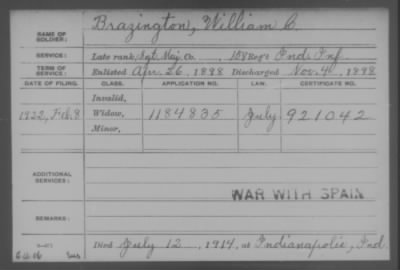 NAME OF SOLDIER: Brazington, William C.
SERVICE: Late rank, Sgt. Maj. Co. 158 Reg't Ind. Inf.
TERM OF SERVICE: Enlisted Apr. 26, 1898 Discharged Nov. 4, 1898
DATE OF FILING. CLASS. APPLICATION NO. LAW. CERTIFICATE NO.
Invalid,
1922, Feb. 8 Widow, 1184835 July 921042
Minor,
ADDITIONAL SERVICES:
WAR WITH SPAIN
REMARKS:
Died July 12, 1914, at Indianapolis, Ind.